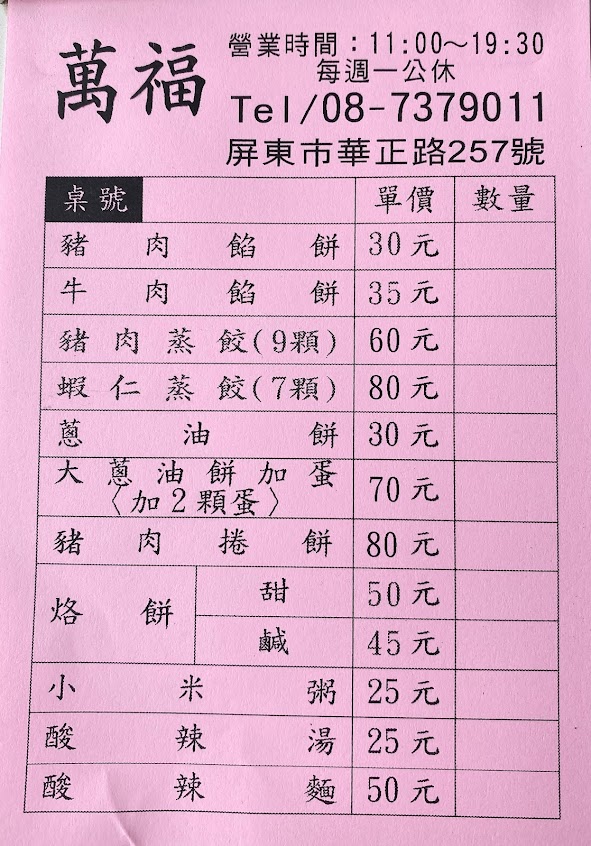 萬福
營業時間：11:00～19:30
每週一公休
Tel/08-7379011
屏東市華正路257號
桌號 單價 數量
豬肉餡餅 30元
牛肉餡餅 35元
豬肉蒸餃(9顆) 60元
蝦仁蒸餃(7顆) 80元
蔥油餅 30元
大蔥油餅加蛋
〈加2顆蛋〉 70元
豬肉捲餅 80元
烙餅 甜 50元
鹹 45元
小米粥 25元
酸辣湯 25元
酸辣麵 50元